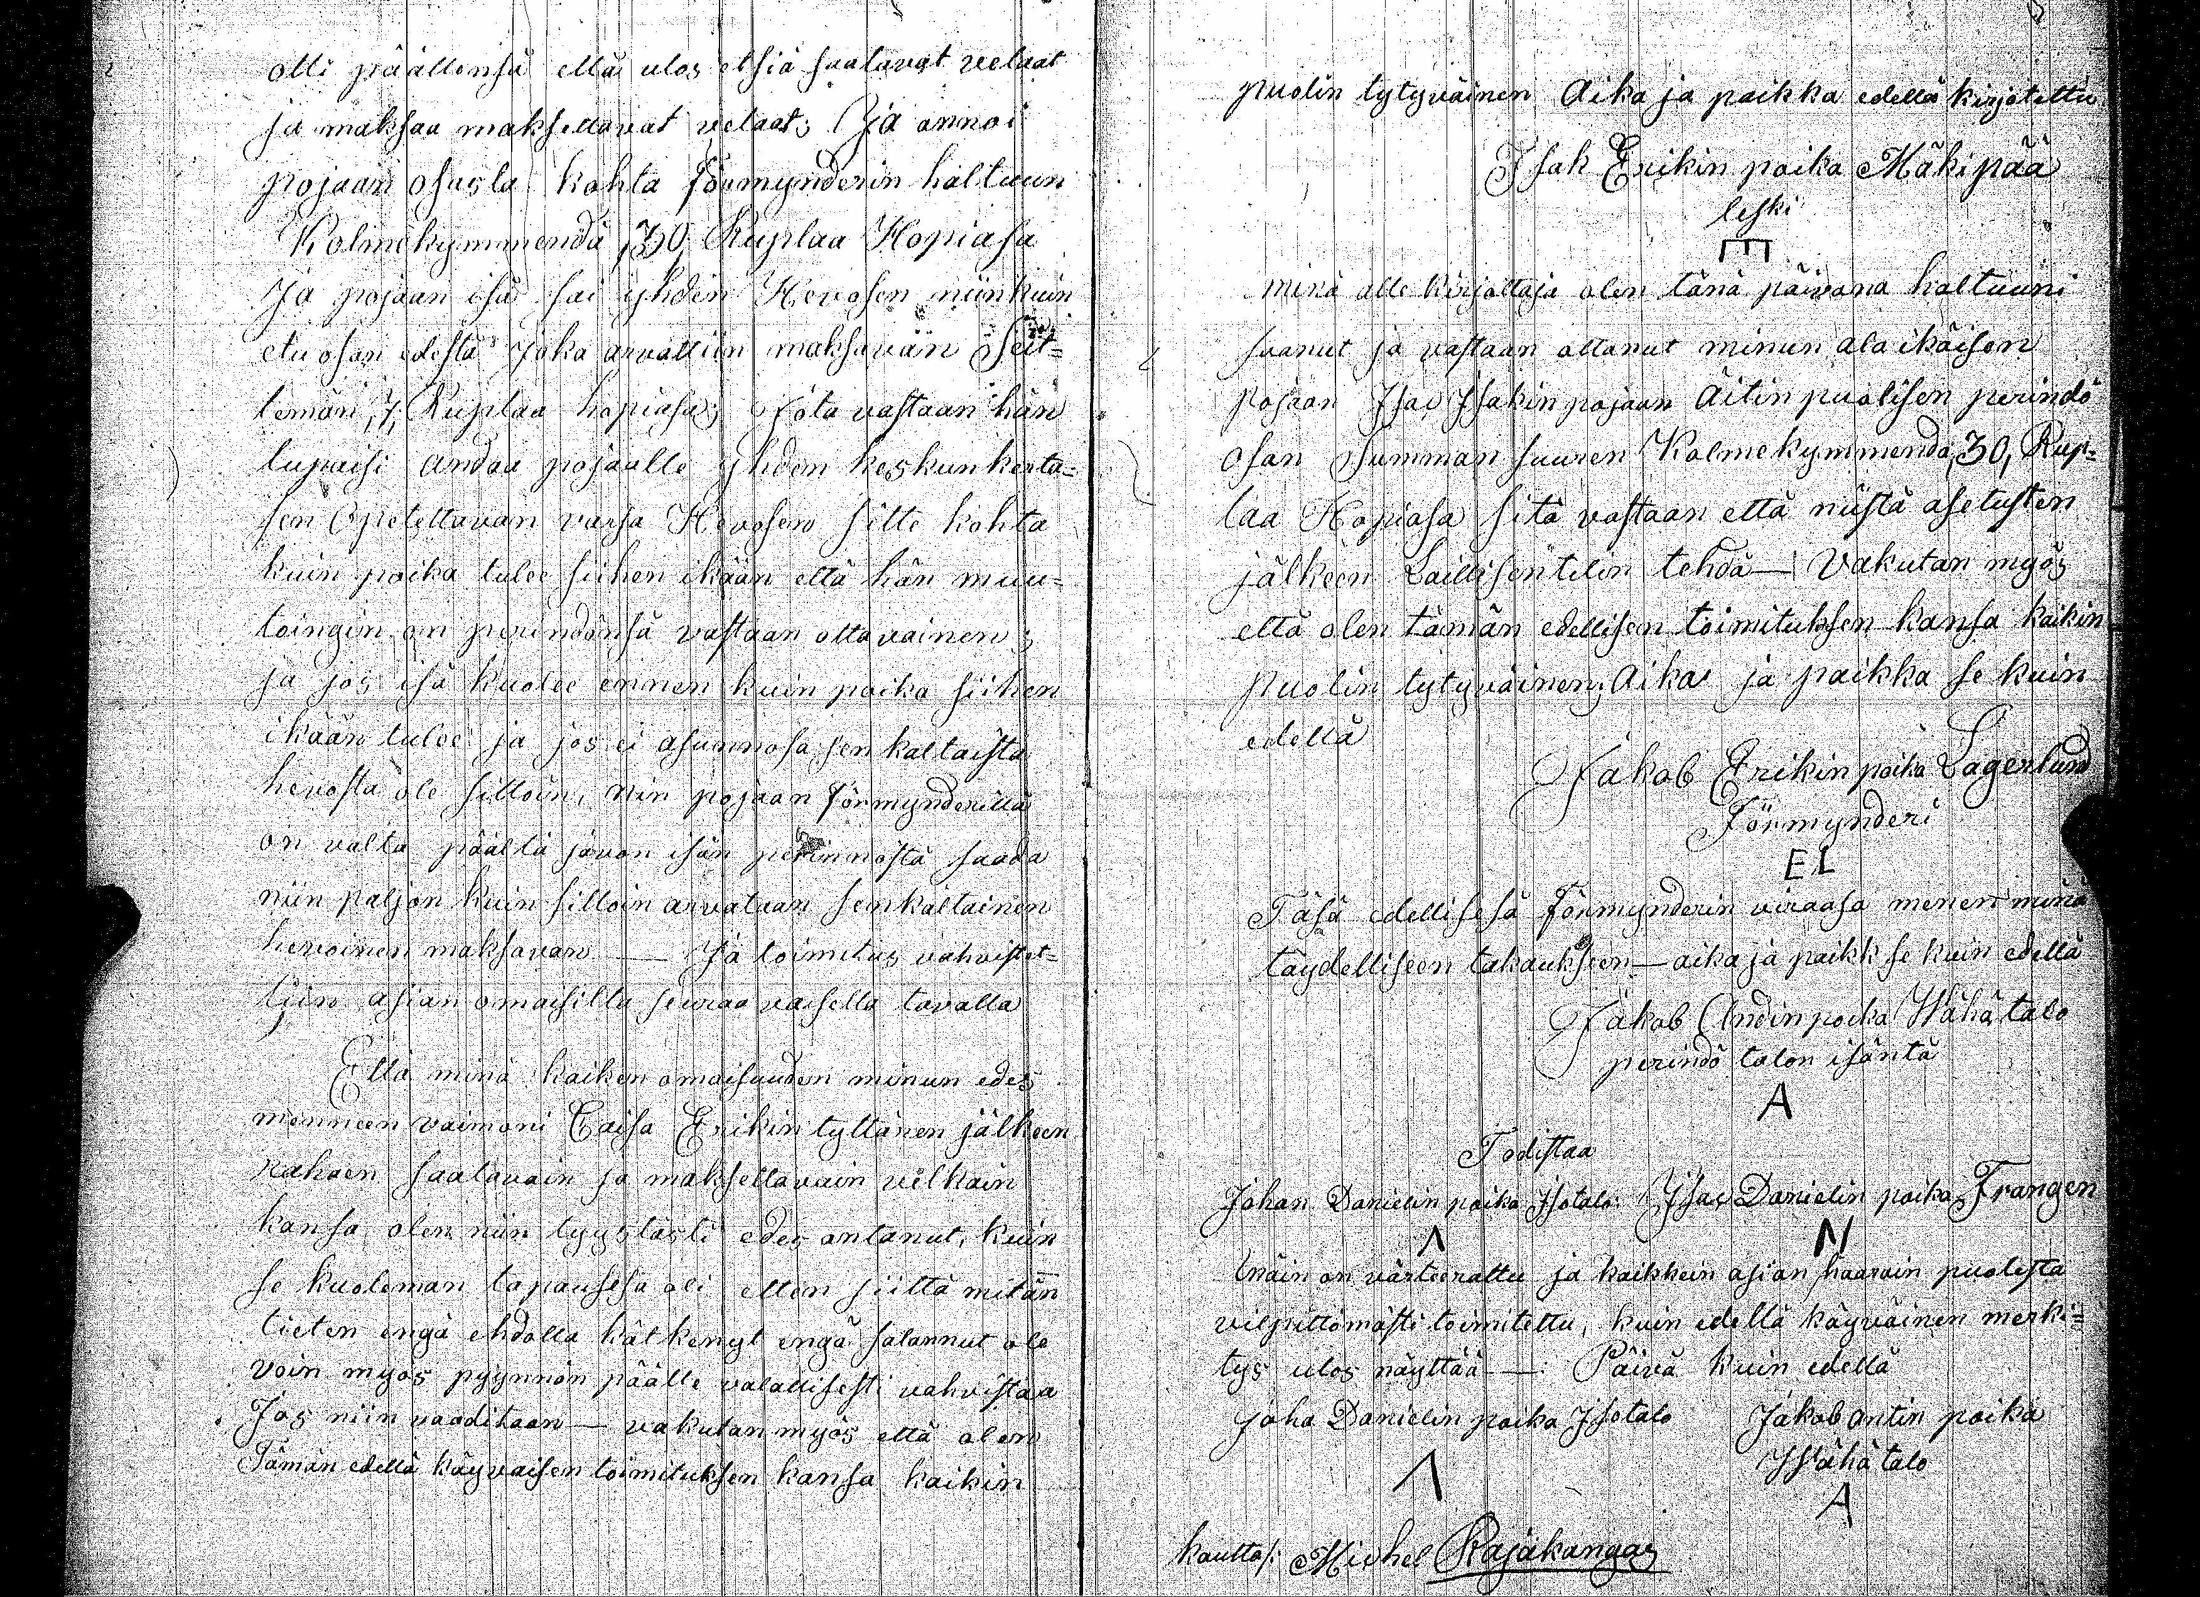 otti päällensä että ulos etsiä saatavat velaat
ja maksaa maksettavat velaat; Ja annoi
pojaan osasta kohta förmynderin haltuun
Kolmekymmendä 30 Ruplaa Hopiasa
Ja pojaan isä sai yhden Hevosen niinkuin
etu osan edestä Joka arvattiin maksavan Seit=
temän ,7, Ruplaa hopiasa; Jota vastaan hän
lupaisi andaa pojaalle yhden keskunkerta=
sen Opetettavan varsa Hevosen sitte kohta
kuin poika tulee siihen ikään että hän muu=
toingin on perindönsä vastaan ottavainen;
ja jos isä kuolee ennen kuin poika siihen
ikään tulee ja jos ei asunnosa sen kaltaista
hevosta ole silloin, niin pojaan förmynderillä
on valta päältä jävän isän perinnöstä saada
niin paljon kuin silloin arvataan senkaltainen
hevoinen maksavan — Ja toimitus vahvistet=
tiin asian omaisilta seuraavaisella tavalla
Että minä kaiken omaisuuden minun edes
menneen vaimoni Caisa Erikin tyttären jälkeen
rahaen saatavain ja maksettavain velkain
kansa olen niin tyystästi edes antanut, kuin
se kuoleman tapauksesa oli etten siittä mitän
tieten engä ehdolla kätkenyt engä salannut ole
voin myös pyynnön päälle valallisesti vahvistaa
Jos niin vaaditaan — vakutan myös että olen
Tämän edellä käyvaisen toimituksen kansa kaikin
puolin tytyväinen Aika ja paikka edellä kirjotettu
Isak Erikin poika Mäkipää
leski
E
minä alle kirjottaja olen tänä päivänä haltuuni
saanut ja vastaan ottanut minun ala ikäisen
pojaan Isac Isakin pojaan Äitin puolisen perindö
osan Summan suuren Kolmekymmendä ,30, Rup=
laa Hopiasa sitä vastaan että niistä asetusten
jälkeen Laillisen tilin tehdä — Vakutan myös
että olen tämän edellisen toimituksen kansa kaikin
puolin tytyväinen; Aika ja paikka se kuin
edellä
Jakob Erikin poika Lagerlund
Förmynderi
EL
Täsä edellisesä Förmynderin viraasa menen minä
täydelliseen takaukseen — aika ja paikk se kuin edellä
Jakob Andin poika Wähätalo
perindö talon isäntä
A
Todistaa
Johan Danielin poika Isotalo: Isac Danielin poika Frangen
Λ N
Näin on värteerattu ja kaikkein asian haarain puolesta
vilpittömästi toimitettu, kuin edellä käyväinen merki=
tys ulos näyttää — Päivä kuin edellä
Joha Danielin poika Isotalo Jakob antin poika
Wähätalo
Λ A
kautta/: Michel Rajakangas